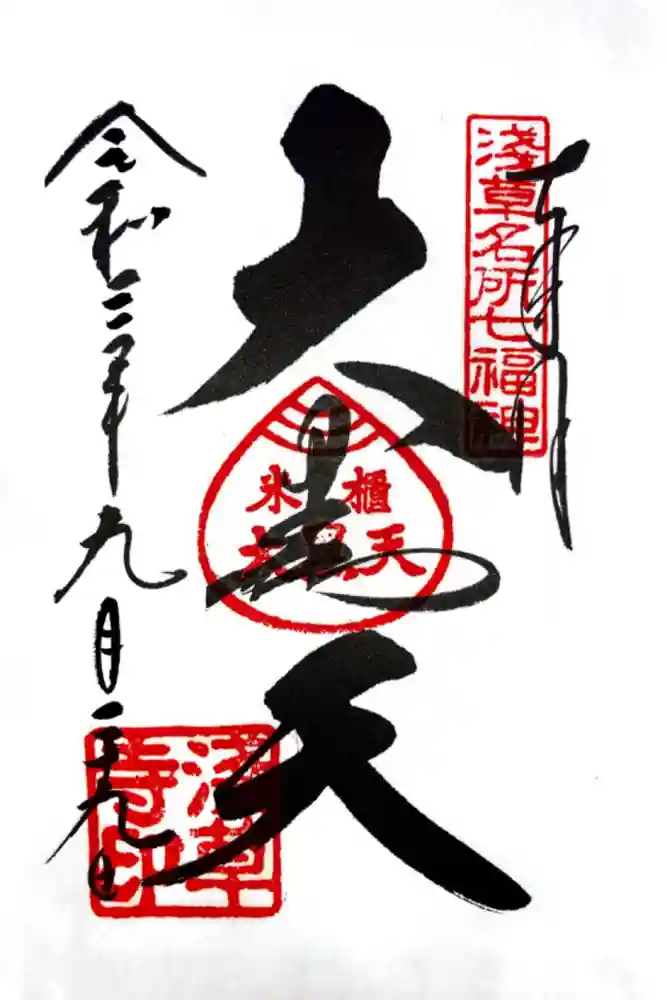 奉拝
淺草名所七福神
大黒天
米櫃
大黒天
令和三年九月二十九日
淺草
寺印